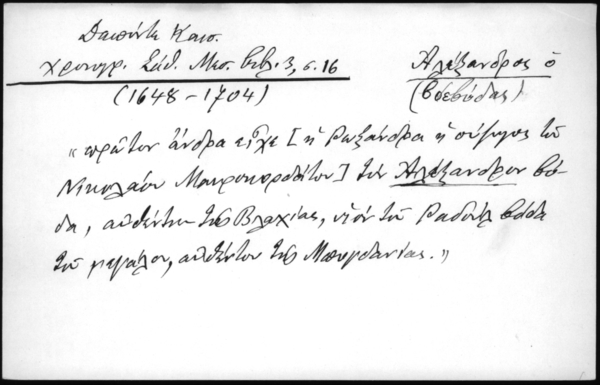 Δαπόντε Καισ.
χρονογρ. Σάθ. Μεσ. Βιβλ. 3, σ. 16
(1648-1704)
Ἀλέξανδρος ὁ
(βόεβόδας)
"πρῶτον ἄνδρα εἶχε [ἡ Ρωξάνδρα ἡ σύζυγος τοῦ
Νικολάου Μαυροκορδάτου] τὸν Ἀλέξανδρον βό-
δα, αὐθέντην τῆς Βλαχίας, υἱὸν τοῦ Ραδούλ βόδα
τοῦ μεγάλου, αὐθέντου τῆς Μπογδανίας."